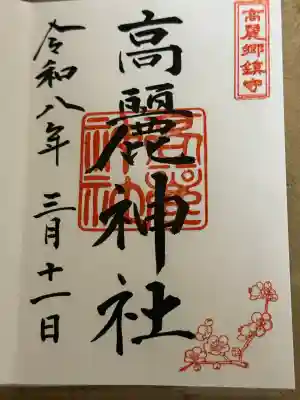 高麗郷鎮守
高麗神社
令和八年 三月十一日
高麗神社